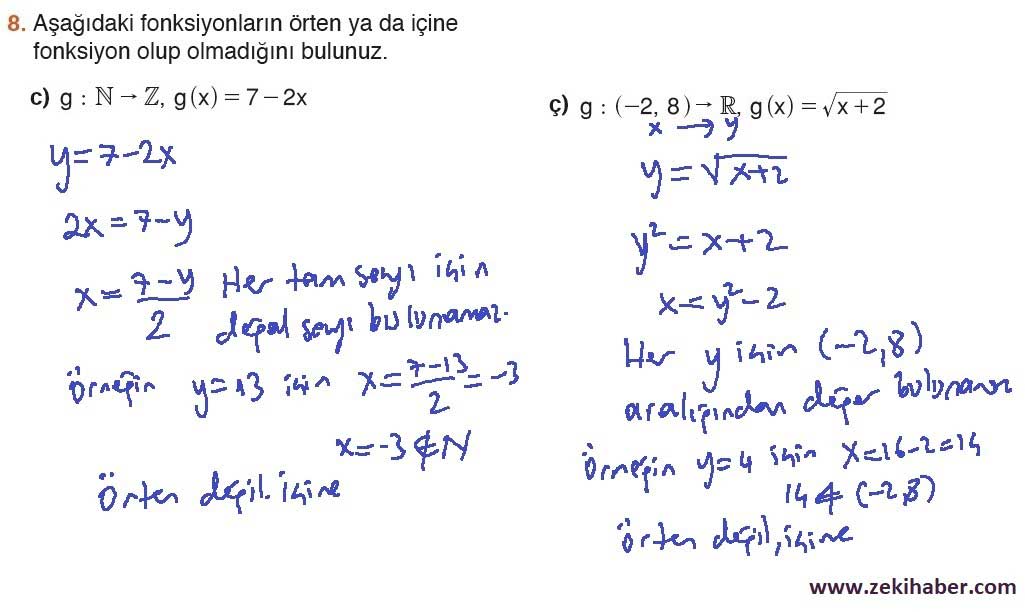 8. Aşağıdaki fonksiyonların örten ya da içine
fonksiyon olup olmadığını bulunuz.
c) g : ℕ → ℤ, g(x) = 7 − 2x
y = 7 − 2x
2x = 7 − y
x = (7 − y)/2 Her tam sayı için
doğal sayı bulunamaz.
Örneğin y = 13 için x = (7 − 13)/2 = −3
x = −3 ∉ N
Örten değil. içine
ç) g : (−2, 8) → ℝ, g(x) = √(x + 2)
x → y
y = √(x + 2)
y² = x + 2
x = y² − 2
Her y için (−2, 8)
aralığından değer bulunamaz
Örneğin y = 4 için x = 16 − 2 = 14
14 ∉ (−2, 8)
örten değil, içine
www.zekihaber.com